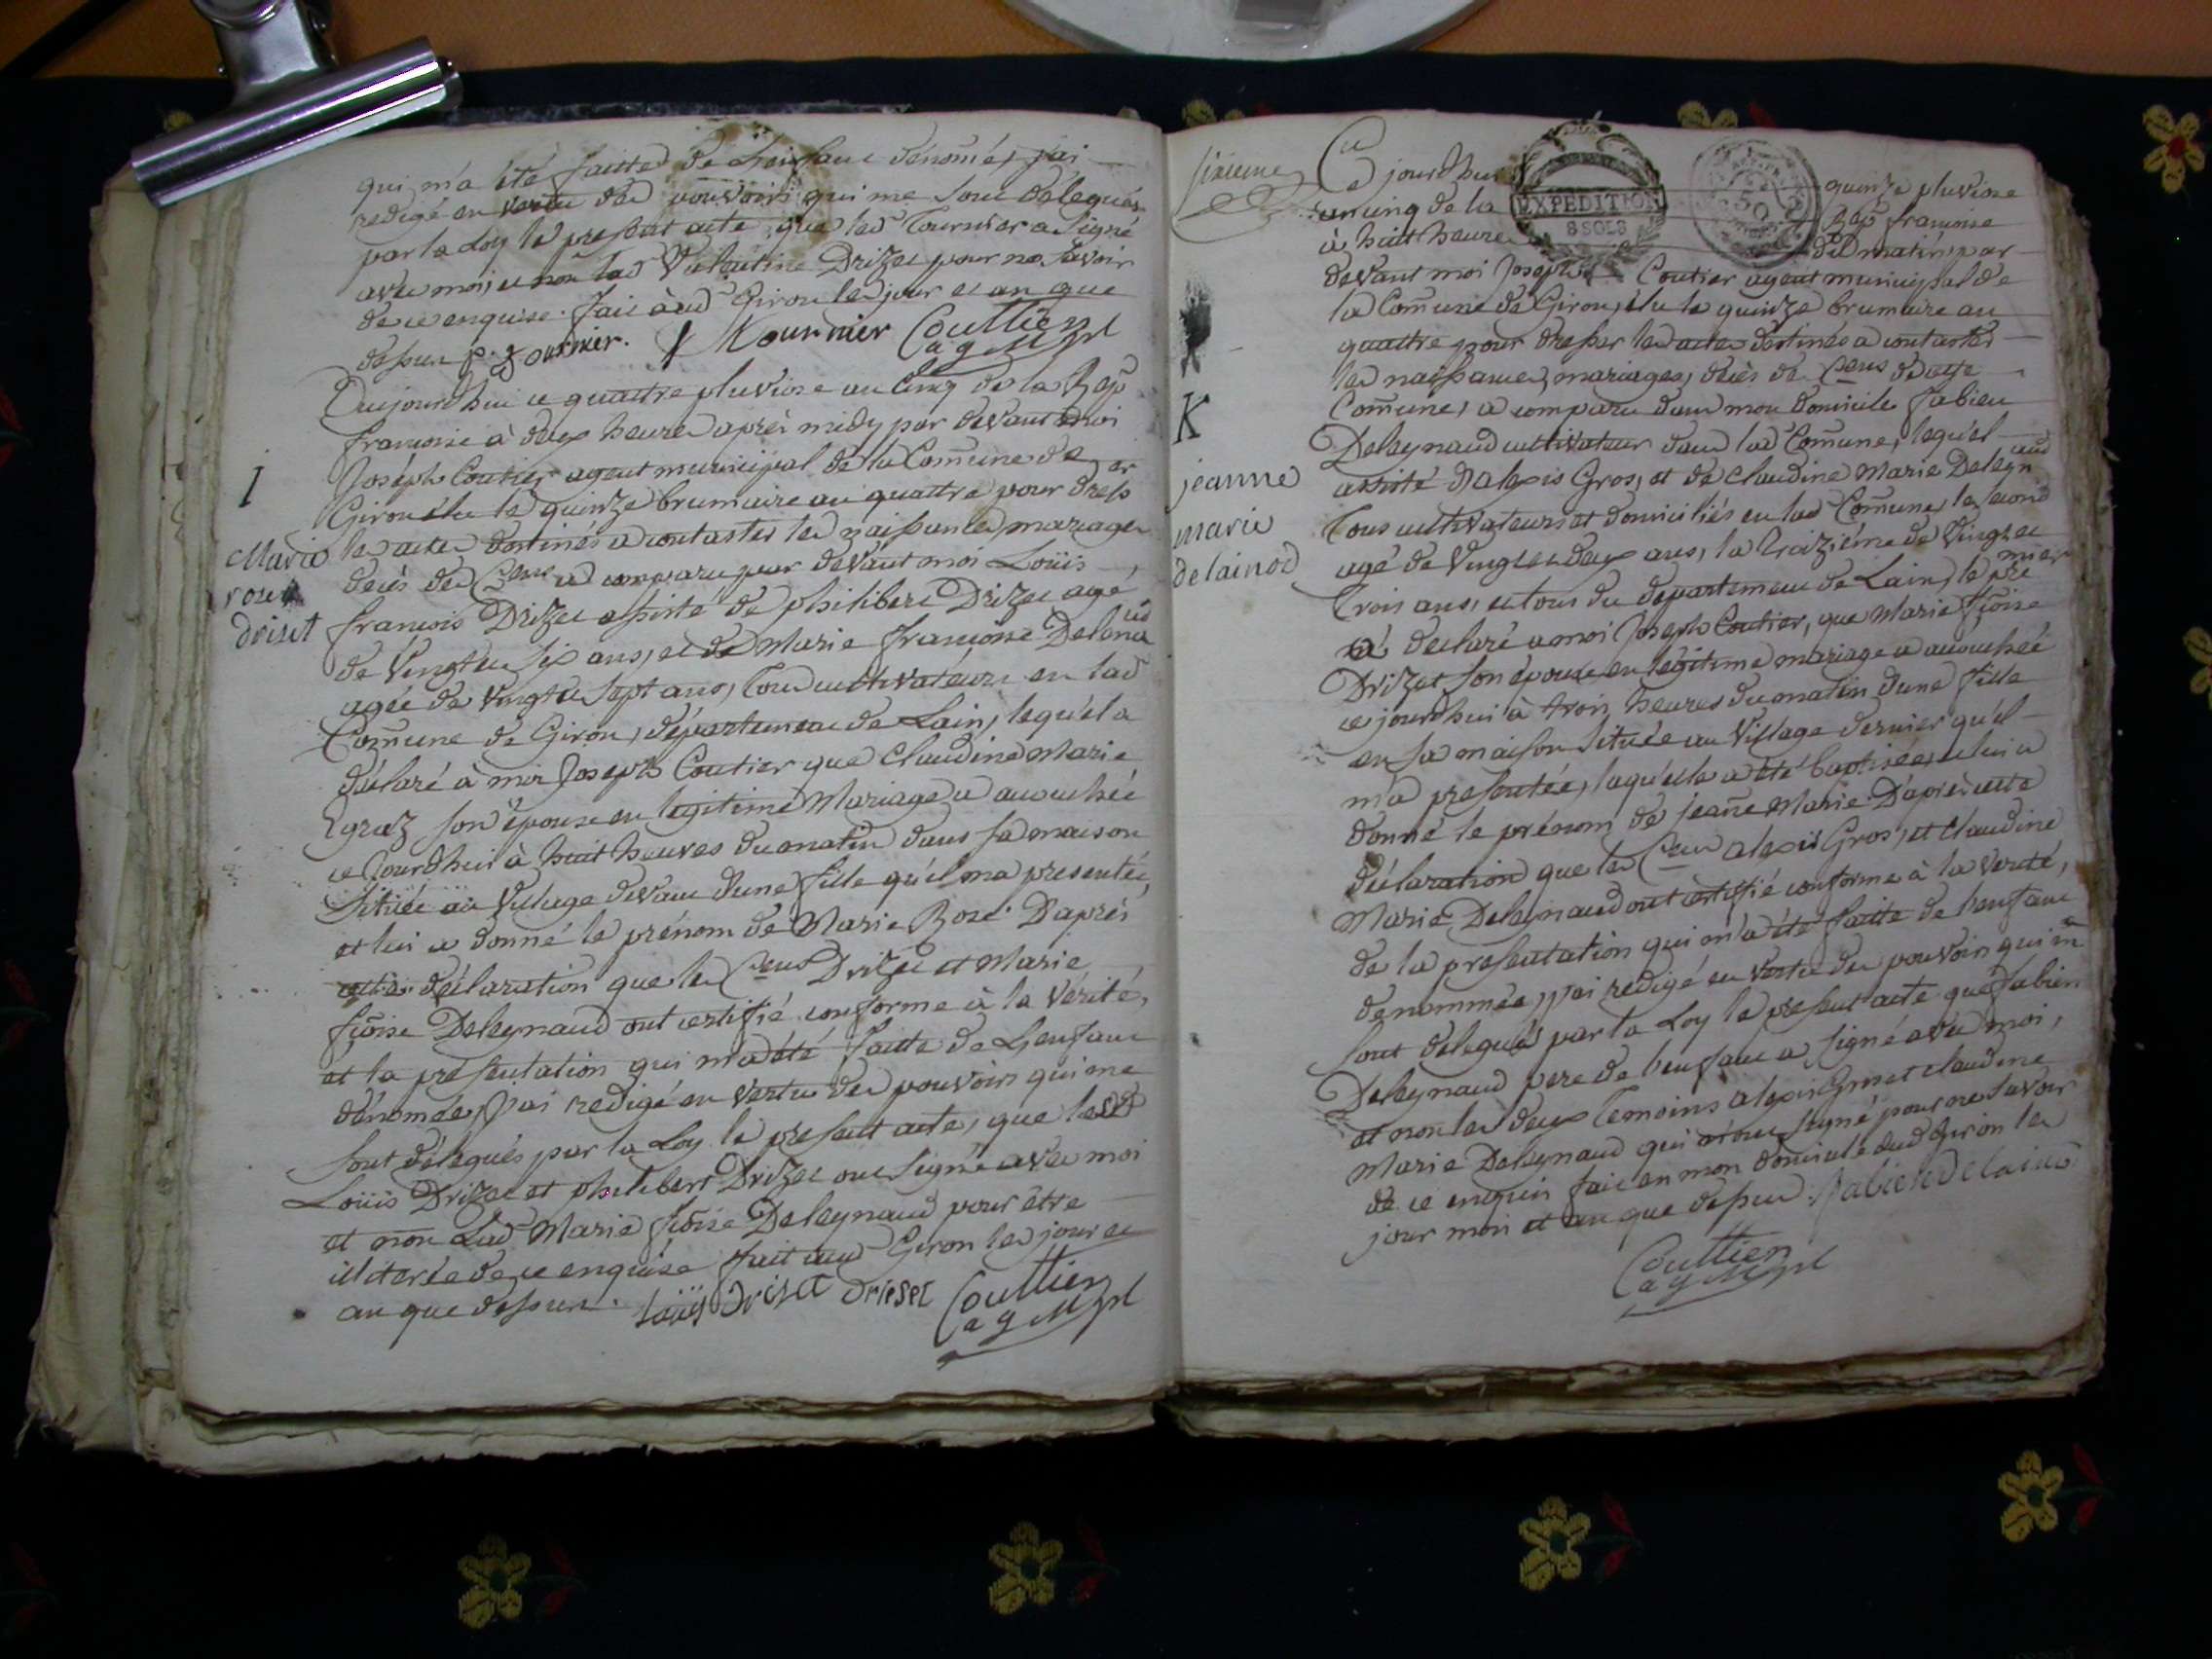 qui m'a été faitte de Lenfant dénomé, j'ai
redigé en vertu des pouvoirs qui me sont delegués
par la Loy le present acte, que led Tournier a signé
avec moi, et non lad Valentine Drizet pour ne savoir
de ce enquise. fait aud Giron les jour et an que
dessus p. j. ournier. Mournier Couttier
ag Mpl
Aujourdhui ce quattre pluviose an Cinq de la Rep
francoise à deux heures après midy par devant moi
Joseph Coutier agent municipal de la Comune de
Giron élu le quinze brumaire an quattre pour dress er
les actes destinés a contaster les naissances mariages
décès des Cens a comparu par devant moi Loüis
francois Drizet assisté de philibert Drizet agé
de Vingt et Six ans, et de Marie francoise Delena ud
agée de vingt et Sept ans, tous cultivateurs en lad
Comune de Giron, département de Lain, lequel a
déclaré à moi Joseph Coutier que Claudine Marie
Egraz son épouse en legitime Mariage a accouchée
ce Jourdhui à huit heures du matin dans sa maison
située au Village devant dune fille qu'il ma presentée,
et lui a donné le prénom de Marie Rose. D'après
cette déclaration que les Cens Drizet et Marie
fçoise Deleynaud ont certifié conforme à la vérité,
et la presentation qui m'a été faitte de Lenfant
dénomée, J'ai redigé en vertu des pouvoirs qui me
sont délegués par la Loy le present acte, que lesd
Loüis Drizet et philibert Drizet ont signé avec moi
et non Lad Marie fçoise Deleynaud pour être
illiterée de ce enquise fait aud Giron les jour et
an que dessus. Loüis Drisat Driset Couttier
ag Mpl
I
Marie
rose
driset
sixieme
Ce jourdhui quinze pluviose
an cinq de la Rep francoise
à huit heures du matin par
devant moi Joseph Coutier agent municipal de
la Comune de Giron, élu le quinze brumaire an
quattre pour dresser les actes destinés a contaster
les naissances, mariages, décès de Cens de cette
Comune, a comparu dans mon domicile fabien
Deleynaud cultivateur dans lad Comune, lequel
assisté d'alexis Gros, et de claudine Marie Deleyn aud
tous cultivateurs et domiciliés en lad Comune, le second
agé de Vingt et deux ans, la troizième de Vingt et
trois ans, et tous du departement de Lain, le pre mier
a déclaré a moi Joseph Coutier, que Marie fçoise
Drizet son épouse en legitime mariage a accouchée
ce jourdhui à trois heures du matin dune fille
en sa maison située au Village dernier qu'el
m'a presentée, laquelle a été baptisée, et lui a
donné le prénom de jeane Marie. D'après cette
déclaration que les Cens alexis Gros, et claudine
Marie Deleynaud ont certifié conforme à la verité,
de la presentation qui m'a été faitte de lenfant
denommée, j'ai redigé en vertu des pouvoirs qui m
sont delegués par la Loy le present acte que fabien
Deleynaud pere de lenfant a signé avec moi,
et non les deux temoins alexis Gros et claudine
Marie Deleynaud qui n'ont signé pour ne savoir
de ce enquis fait en mon domicile dud Giron les
jour mois et an que dessus. fabien delainod
Couttier
ag Mpl
K
jeanne
marie
delainod
EXPEDITION
8 SOLS